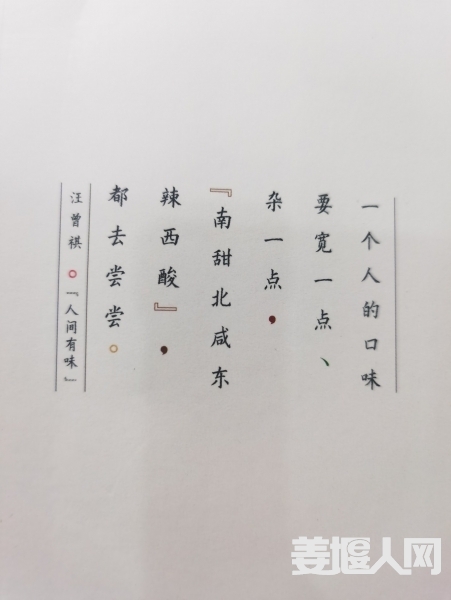 一个人的口味
要宽一点、
杂一点，
『南甜北咸东
辣西酸』，
都去尝尝。
汪曾祺。『人间有味』
姜堰人网